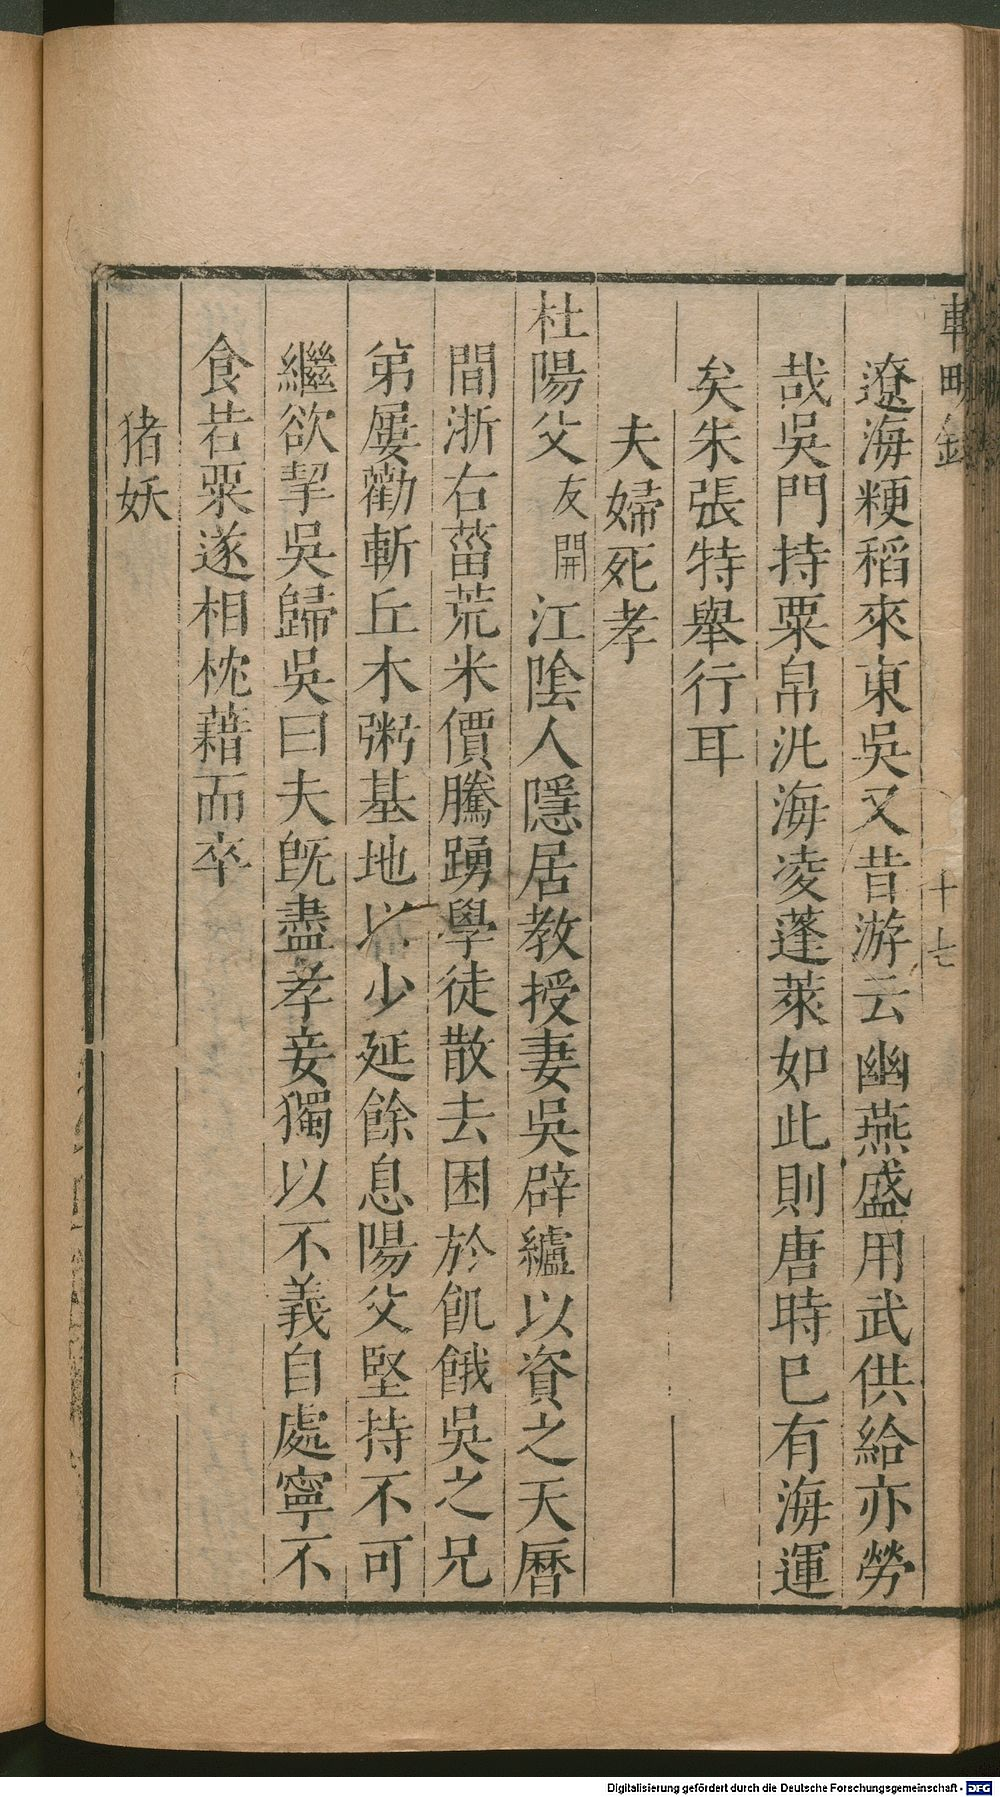 遼海粳稻來東吳又昔游云幽燕盛用武供給亦勞
哉吳門持粟帛汎海凌蓬萊如此則唐時已有海運
矣朱張特舉行耳
夫婦死孝
杜陽父友開江陰人隱居教授妻吳辟纑以資之天曆
間浙右葘荒米價騰踴學徒散去困於飢餓吳之兄
弟屢勸斬丘木粥基地以少延餘息陽父堅持不可
繼欲挈吳歸吳曰夫旣盡孝妾獨以不義自處寧不
食若粟遂相枕藉而卒
猪妖
十七
Digitalisierung gefördert durch die Deutsche Forschungsgemeinschaft - DFG